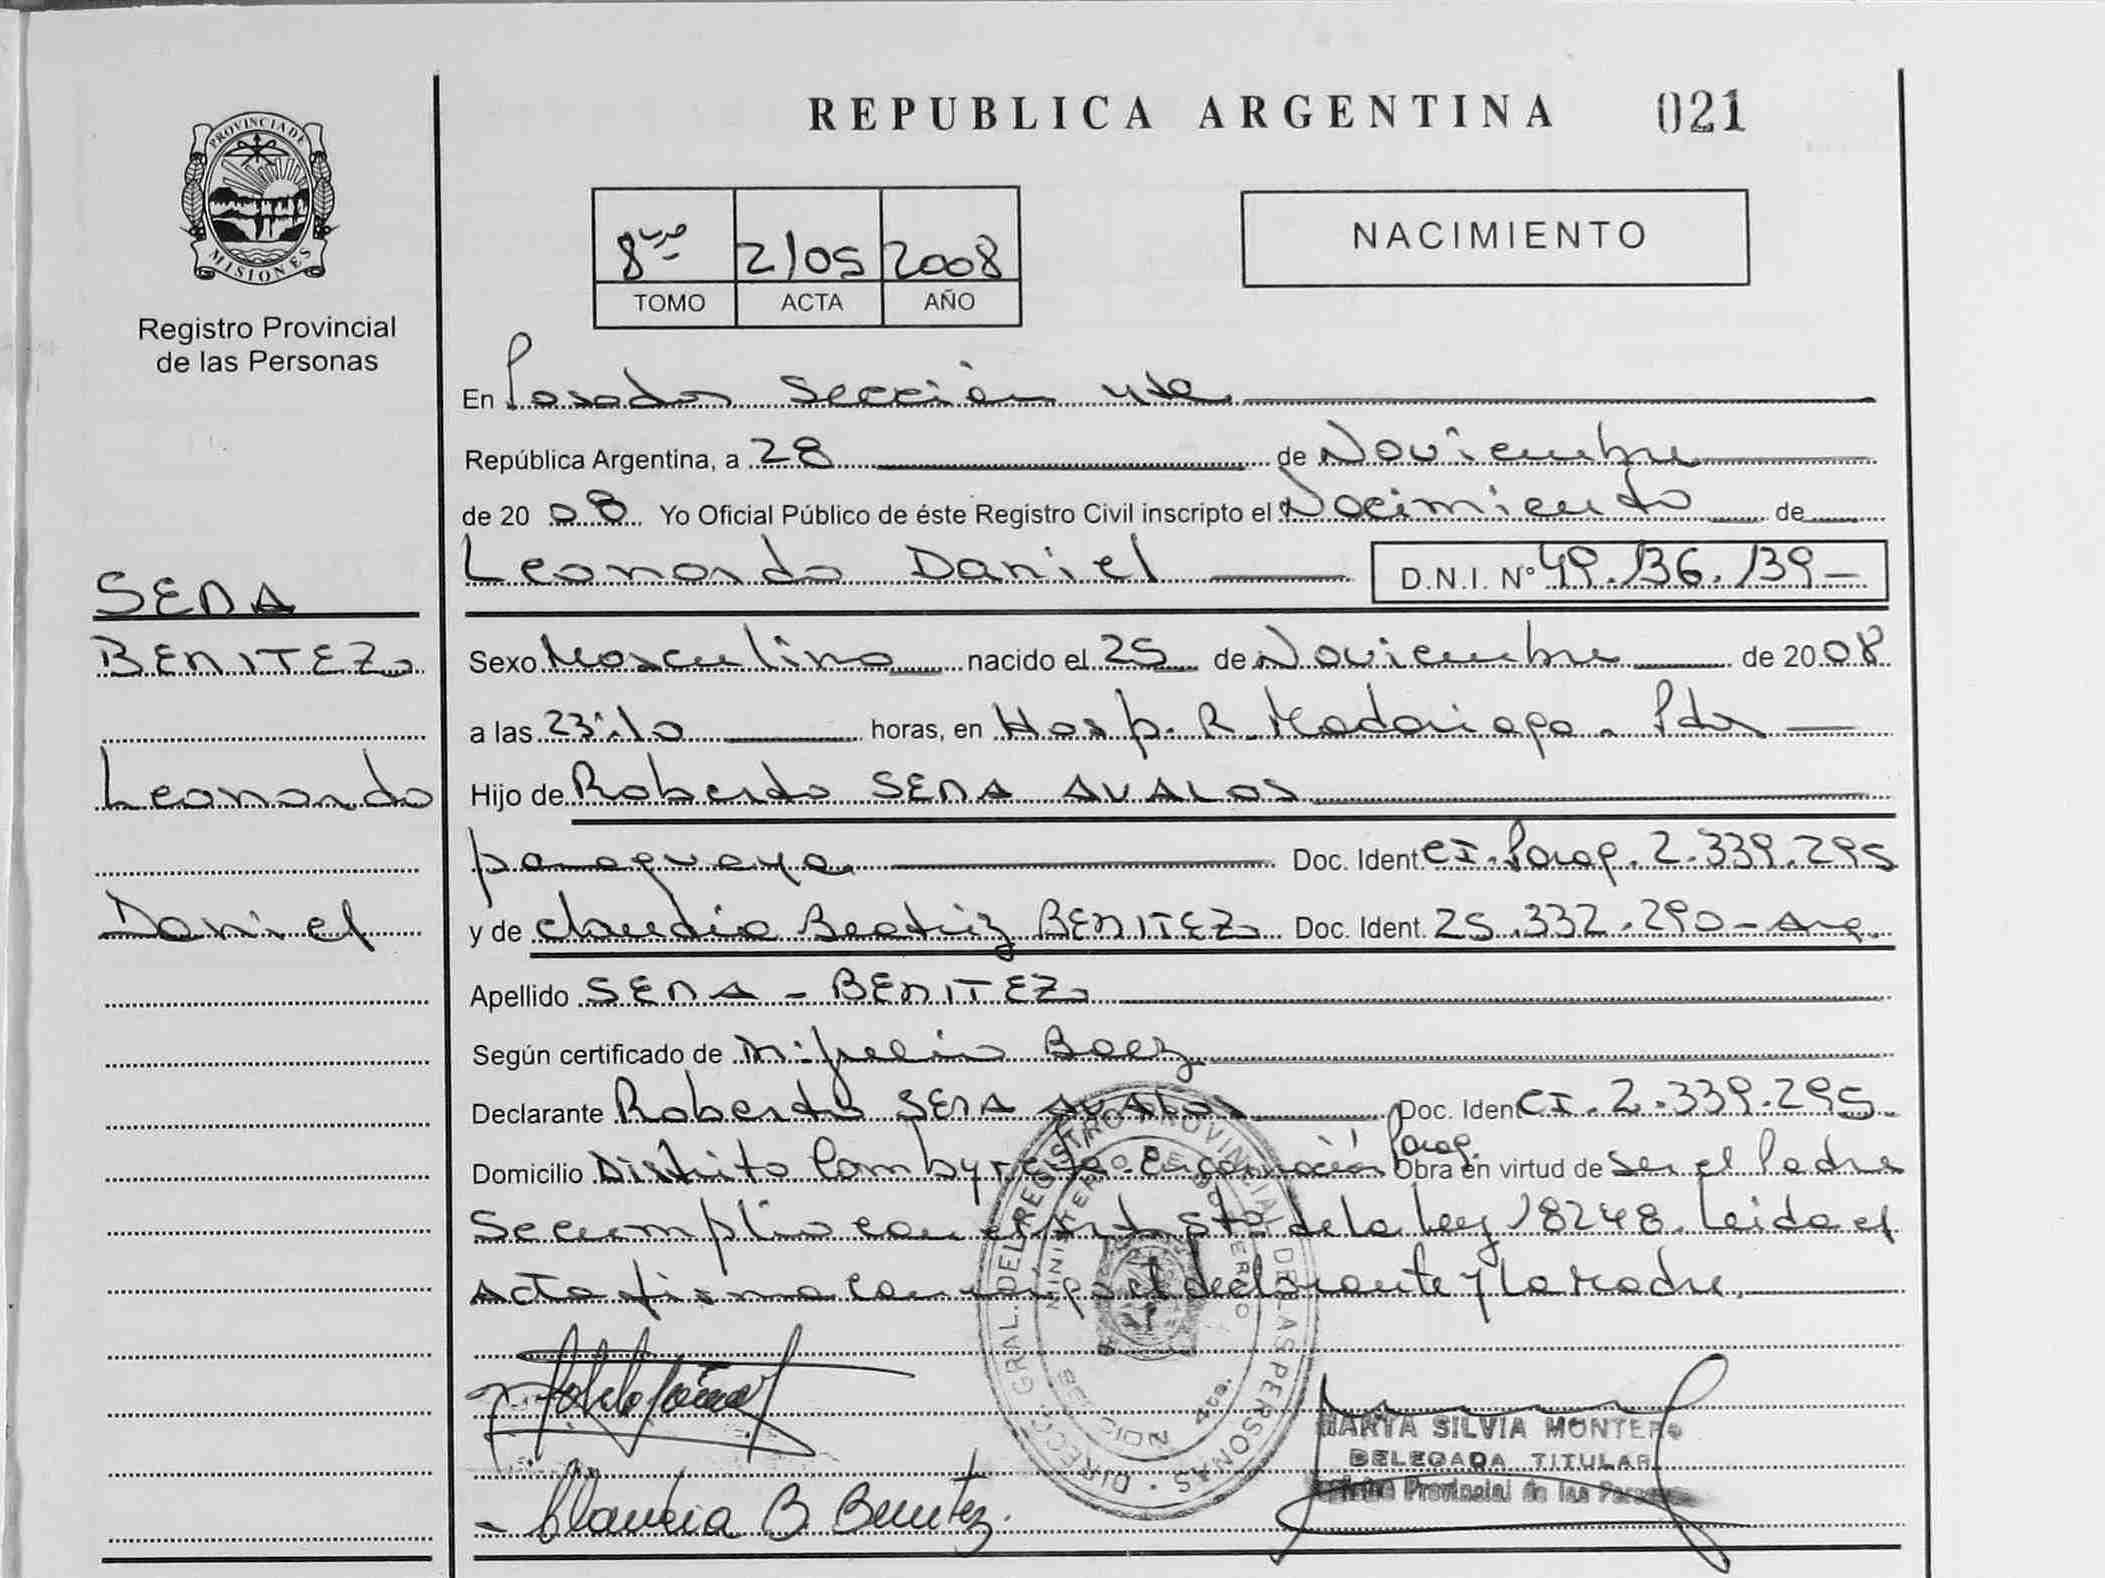 REPUBLICA ARGENTINA 021
PROVINCIA DE
MISIONES
Registro Provincial
de las Personas
8 2105 2008
TOMO ACTA AÑO
NACIMIENTO
En Posadas Sección 4ta
República Argentina, a 28 de Noviembre
de 2008 Yo Oficial Público de éste Registro Civil inscripto el Nacimiento de
Leonardo Daniel D.N.I. Nº 49.136.139-
SENA
BENITEZ
Leonardo
Daniel
Sexo Masculino nacido el 25 de Noviembre de 2008
a las 23:10 horas, en Hosp. R. Madariaga - Pdas
Hijo de Roberto SENA AVALOS
paraguaya Doc. Ident. CI. Parag. 2.339.295
y de Claudia Beatriz BENITEZ Doc. Ident. 25.332.290 - Arg.
Apellido SENA - BENITEZ
Según certificado de Baez
Declarante Roberto SENA AVALOS Doc. Iden CI. 2.339.295.
Domicilio Distrito Cambyreta - Encarnación Parag. Obra en virtud de ser el Padre
Se cumplio con el Art 5to de la Ley 18248. Leida el
Acta firma conmigo el declarante y la Madre.
DIRECC. GRAL. DEL REGISTRO PROVINCIAL DE LAS PERSONAS
MINISTERIO DE GOBIERNO
SECCION 4ta.
MARTA SILVIA MONTERO
DELEGADA TITULAR
Provincial de las
Claudia B Benitez.